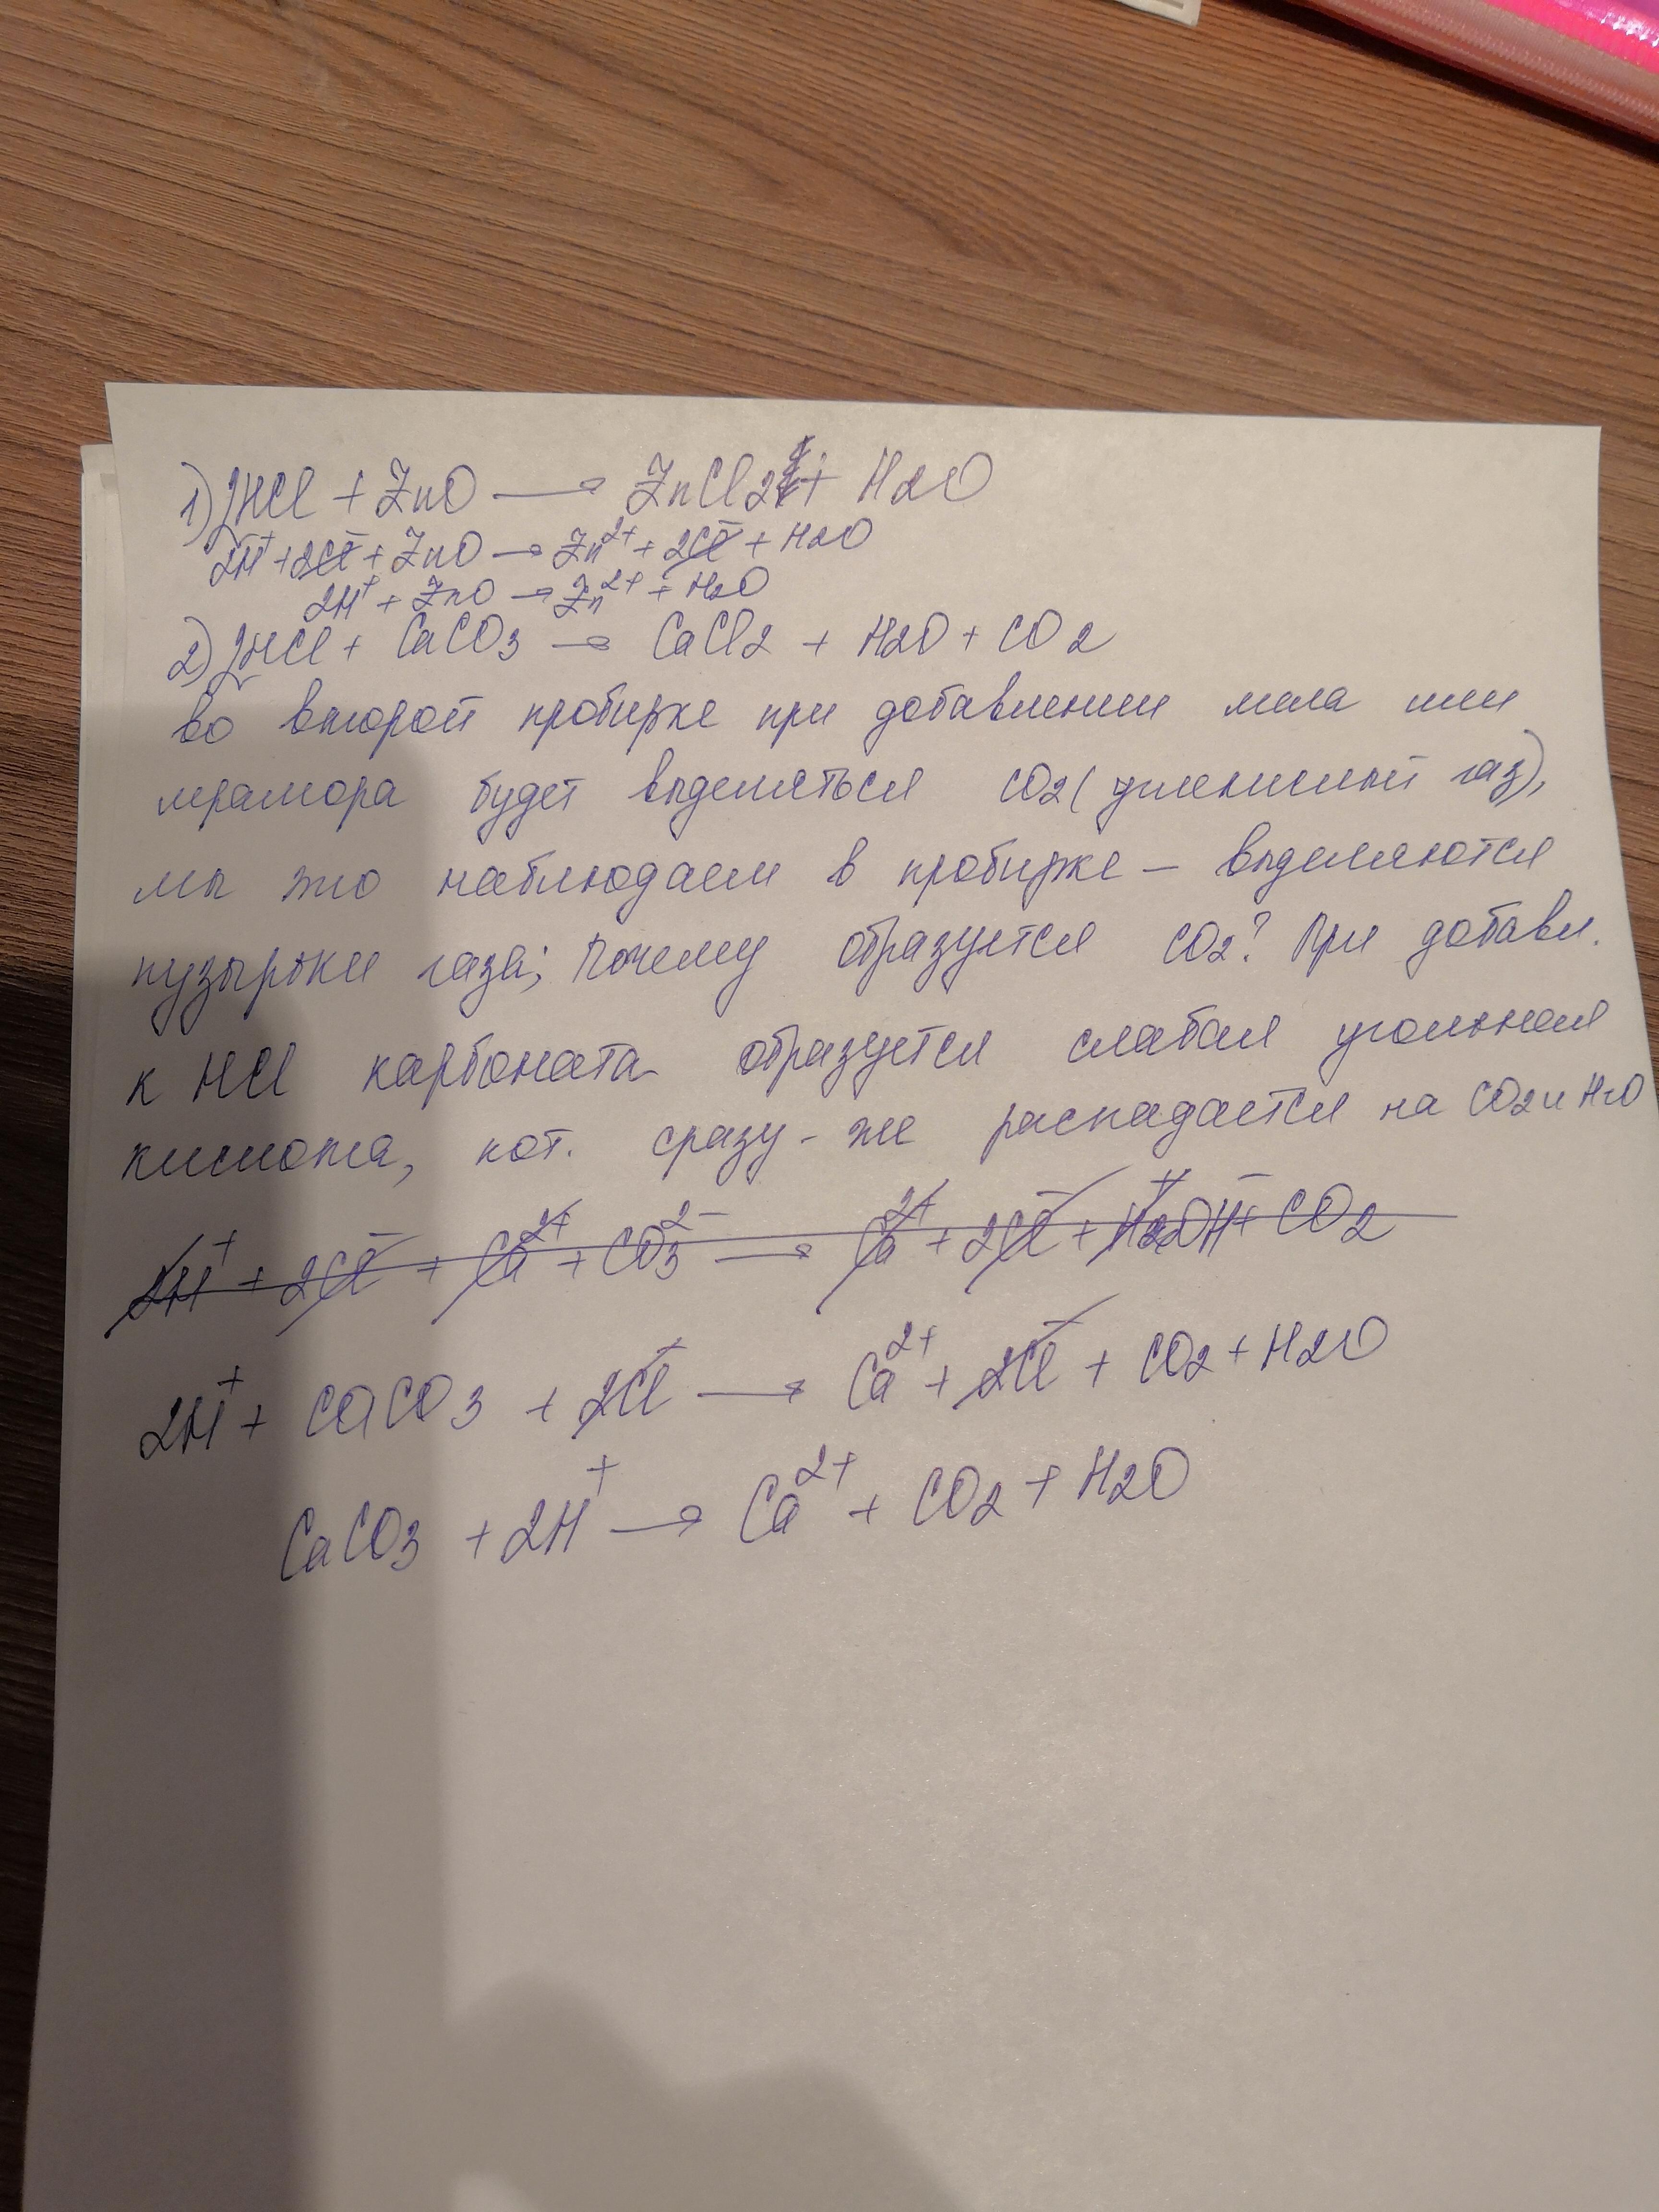 1) 2HCl + ZnO → ZnCl2 + H2O
2H⁺ + 2Cl⁻ + ZnO → Zn²⁺ + 2Cl⁻ + H2O
2H⁺ + ZnO → Zn²⁺ + H2O
2) 2HCl + CaCO3 → CaCl2 + H2O + CO2
во второй пробирке при добавлении мела или
мрамора будет выделяться CO2 (углекислый газ),
мы это наблюдаем в пробирке – выделяются
пузырьки газа; Почему образуется CO2? При добавл.
к HCl карбоната образуется слабая угольная
кислота, кот. сразу-же распадается на CO2 и H2O
2H⁺ + 2Cl⁻ + Ca²⁺ + CO3²⁻ → Ca²⁺ + 2Cl⁻ + H⁺ OH⁻ + CO2
2H⁺ + CaCO3 + 2Cl⁻ → Ca²⁺ + 2Cl⁻ + CO2 + H2O
CaCO3 + 2H⁺ → Ca²⁺ + CO2 + H2O